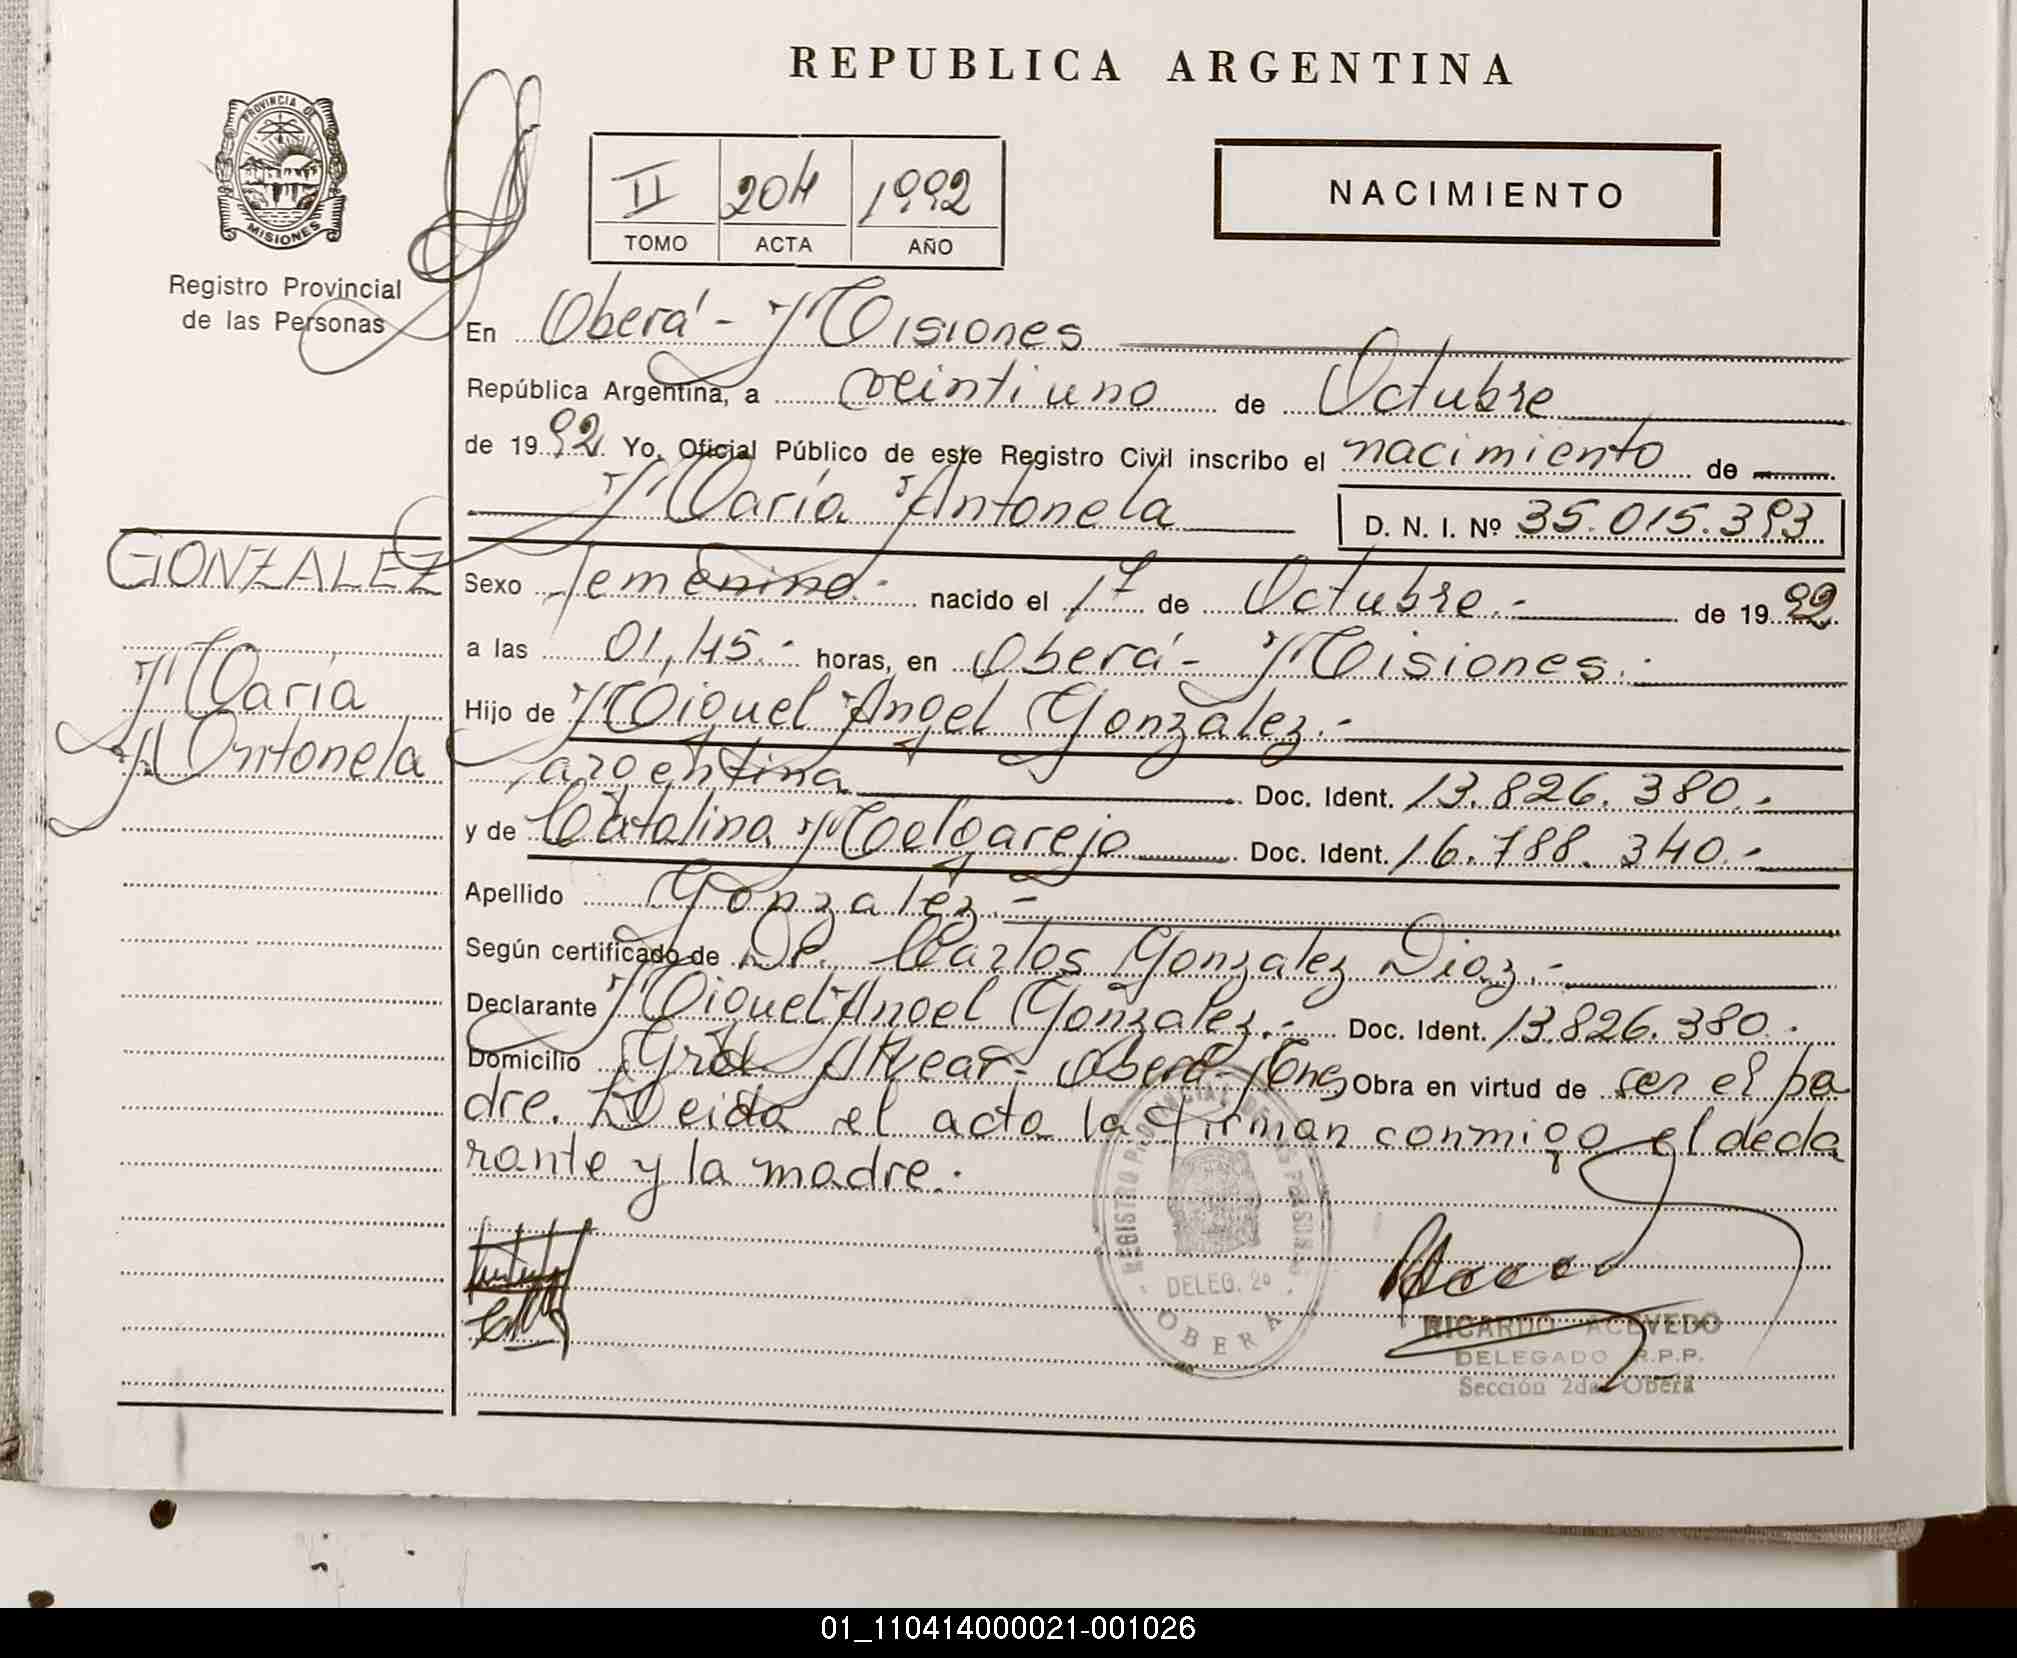 REPUBLICA ARGENTINA
PROVINCIA DE
MISIONES
Registro Provincial
de las Personas
II 204 1992
TOMO ACTA AÑO
NACIMIENTO
En Oberá - Misiones
República Argentina, a veintiuno de Octubre
de 1992. Yo, Oficial Público de este Registro Civil inscribo el nacimiento de
María Antonela D. N. I. Nº 35.015.393
GONZALEZ
María
Antonela
Sexo Femenino.- nacido el 1º de Octubre.- de 1992
a las 01,45.- horas, en Oberá - Misiones.-
Hijo de Miguel Angel Gonzalez.-
argentina Doc. Ident. 13.826.380.-
y de Catalina Melgarejo Doc. Ident. 16.788.340.-
Apellido Gonzalez.-
Según certificado de Dr. Carlos Gonzalez Diaz.-
Declarante Miguel Angel Gonzalez.- Doc. Ident. 13.826.380.-
Domicilio Gral Alvear - Oberá - Mnes Obra en virtud de ser el pa
dre. Leida el acta la firman conmigo el decla
rante y la madre.-
REGISTRO PROVINCIAL DE LAS PERSONAS
DELEG. 2a
OBERA
RICARDO ACEVEDO
DELEGADO R.P.P.
Sección 2da Oberá
01_110414000021-001026